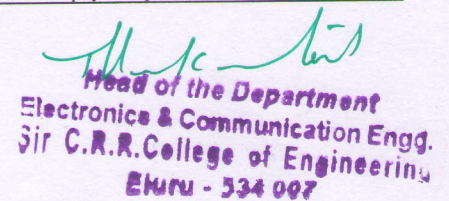 Head of the Department
Electronics & Communication Engg.
Sir C.R.R.College of Engineering
Eluru - 534 007